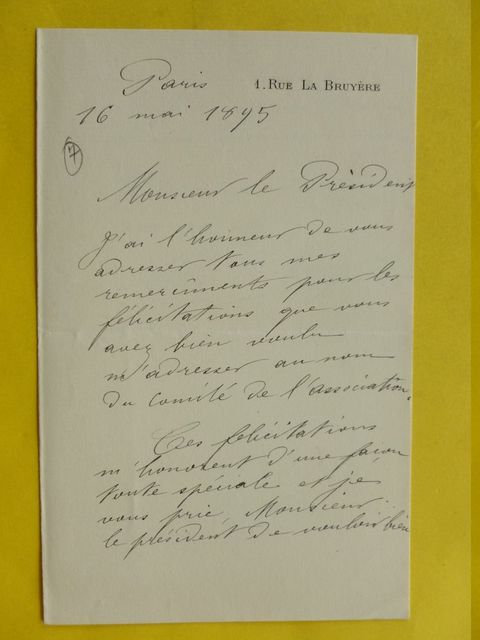 Paris 1. RUE LA BRUYÈRE
16 mai 1895
7
Monsieur le Président
J'ai l'honneur de vous
adresser tous mes
remercîments pour les
félicitations que vous
avez bien voulu
m'adresser au nom
du Comité de l'association.
Ces félicitations
m'honorent d'une façon
toute spéciale et je
vous prie, Monsieur
le président de vouloir bien